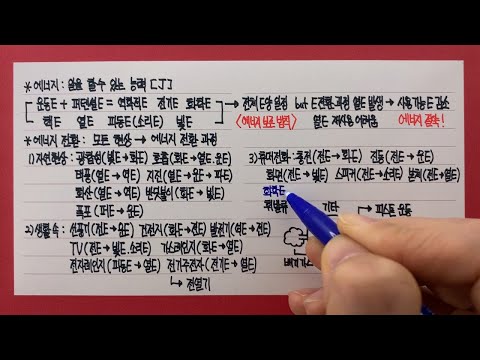 * 에너지 : 일을 할 수 있는 능력 [J]
운동E + 퍼텐셜E = 역학적E 전기E 화학E → 전체 E양 일정 but E전환 과정 열E 발생 → 사용가능E 감소
핵E 열E 파동E(소리E) 빛E <에너지 보존 법칙> 열E 재사용 어려움 에너지 절약!
* 에너지 전환 : 모든 현상 → 에너지 전환 과정
1) 자연현상 : 광합성(빛E → 화E) 호흡(화E → 열E. 운E)
태풍(열E → 역E) 지진(전E → 운E. 열E)
화산(열E → 역E) 반딧불이(화E → 빛E)
폭포(퍼E → 운E)
2) 생활 속 : 선풍기(전E → 운E) 건전지(화E → 전E) 발전기(역E → 전E)
TV(전E → 빛E. 소리E) 가스레인지(화E → 열E)
전자레인지(파동E → 열E) 전기주전자(전기E → 열E)
→ 전열기
3) 휴머전화 : 충전(전E → 화E) 진동(전E → 운E)
화면(전E → 빛E) 스피커(전E → 소리E) 본체(전E → 열E)
화학E
기타 → 피스톤 운동